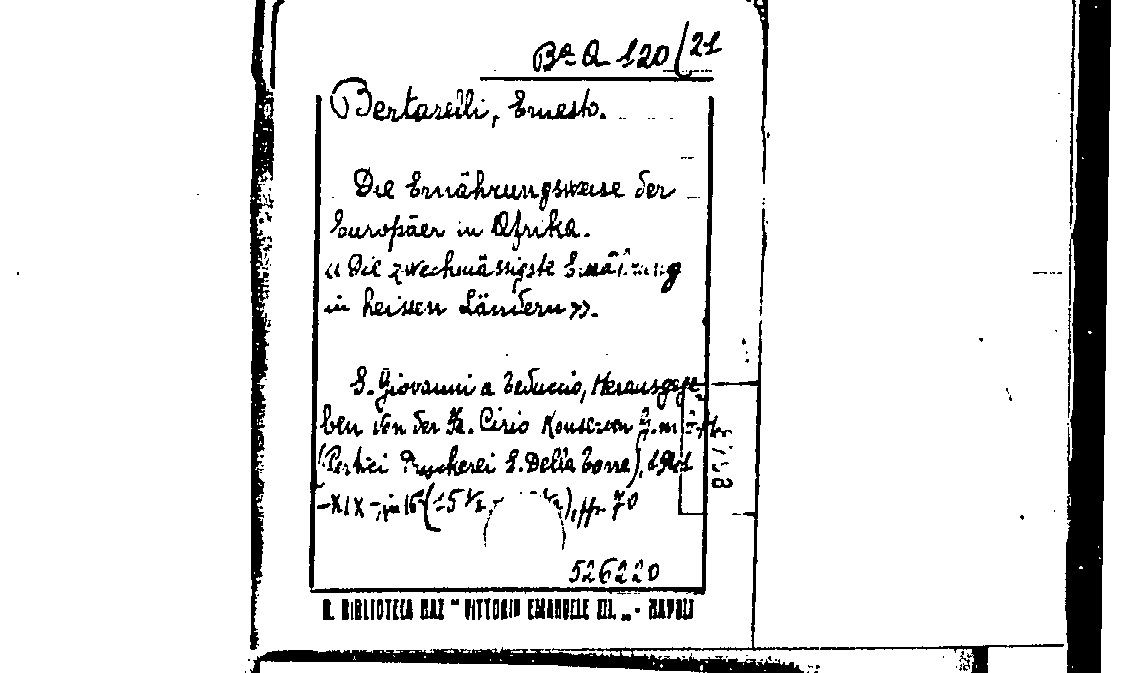 Bª Q 120/21
Bertarelli, Ernesto.
Die Ernährungsweise der
Europäer in Afrika.
« Die zweckmässigste Ernährung
in heissen Ländern ».
S. Giovanni a Teduccio, Herausgege
ben von der Fa. Cirio Konserven G.m.
(Portici Druckerei E. Della Torre), 1941
-XIX-, in 16º (15½, ½), pp. 70
526220
R. BIBLIOTECA NAZ "VITTORIO EMANUELE III" - NAPOLI